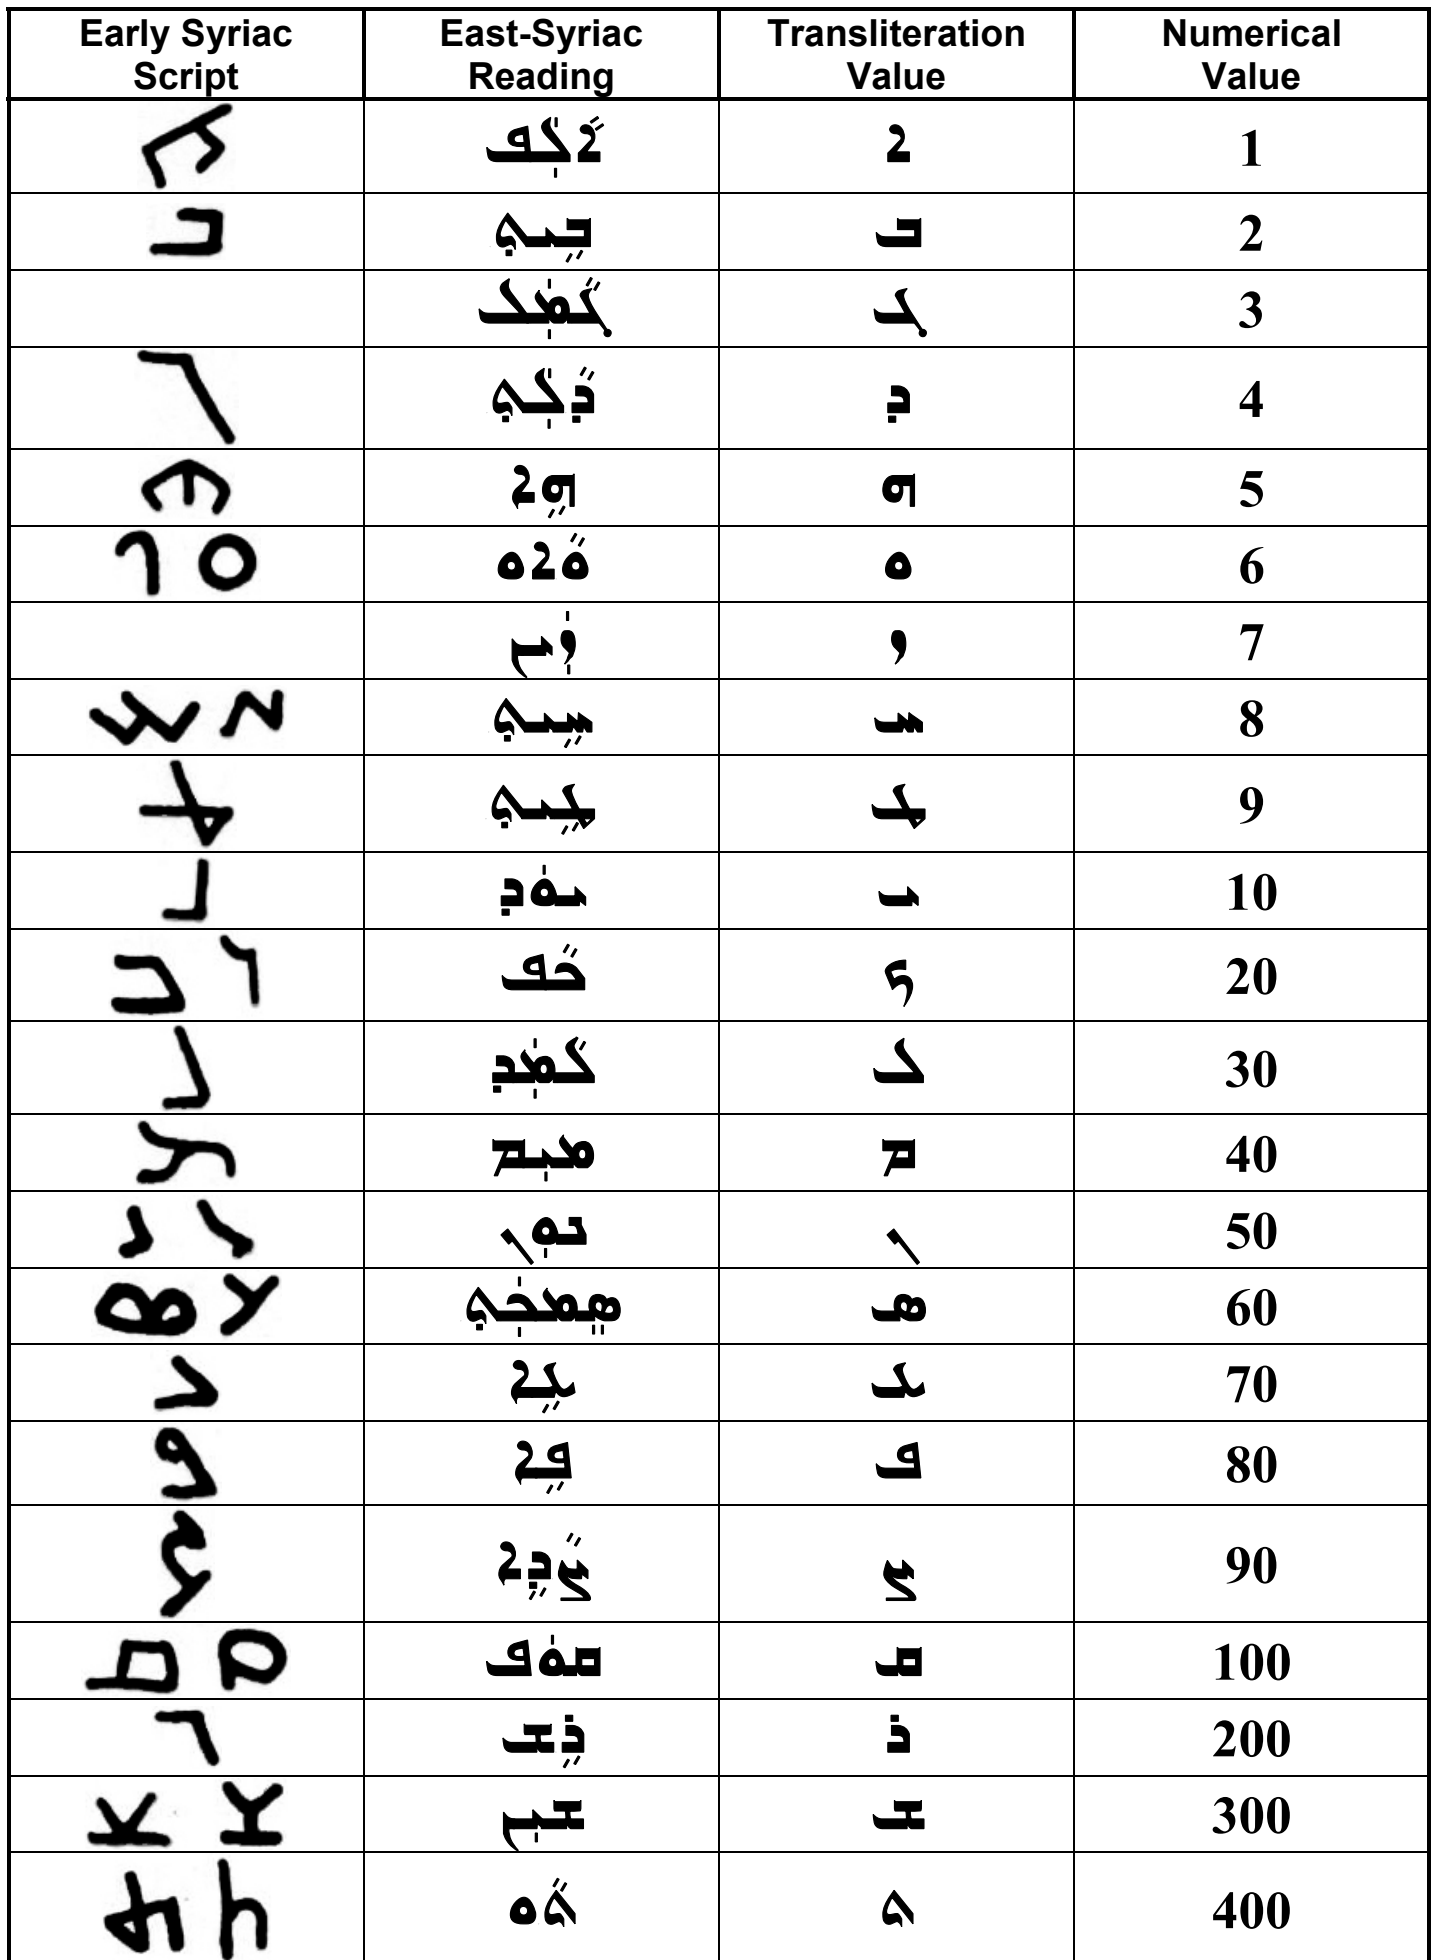 Early Syriac Script East-Syriac Reading Transliteration Value Numerical Value
ܐܵܠܲܦ ܐ 1
ܒܹܝܬ݂ ܒ 2
ܓܵܡܲܠ ܓ 3
ܕܵܠܲܬ݂ ܕ 4
ܗܹܐ ܗ 5
ܘܵܐܘ ܘ 6
ܙܲܝܢ ܙ 7
ܚܹܝܬ݂ ܚ 8
ܛܹܝܬ݂ ܛ 9
ܝܘܿܕ ܝ 10
ܟܵܦ ܟ 20
ܠܵܡܲܕ ܠ 30
ܡܝܼܡ ܡ 40
ܢܘܼܢ ܢ 50
ܣܸܡܟܲܬ݂ ܣ 60
ܥܹܐ ܥ 70
ܦܹܐ ܦ 80
ܨܵܕܹܐ ܨ 90
ܩܘܿܦ ܩ 100
ܪܹܫ ܪ 200
ܫܝܼܢ ܫ 300
ܬܵܘ ܬ 400